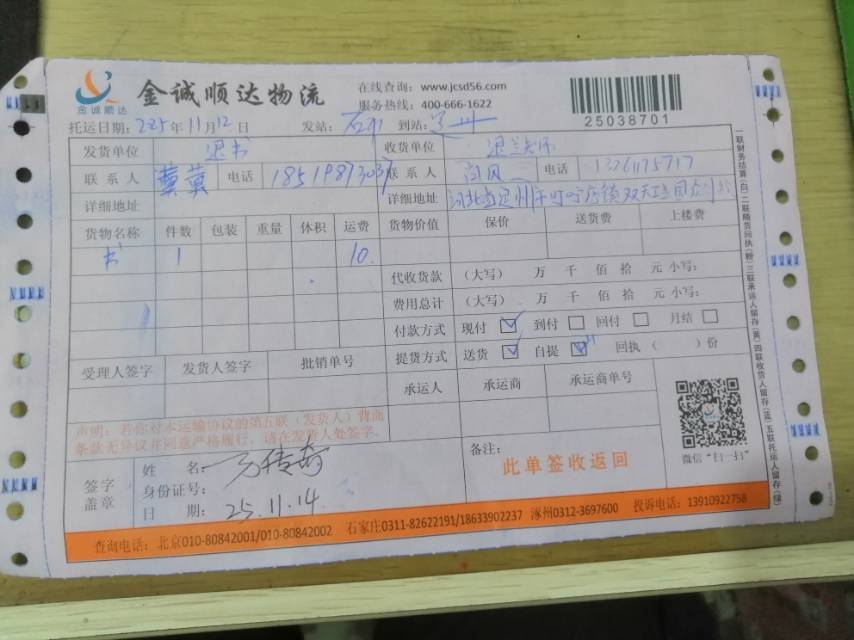 金诚顺达
金诚顺达物流
在线查询：www.jcsd56.com
服务热线：400-666-1622
25038701
托运日期：2025年11月12日 发站： 到站：
发货单位 退书 收货单位
联系人 冀冀 电话 18519873037 联系人 电话
详细地址 详细地址 河北省定州市叮咛店镇
货物名称 件数 包装 重量 体积 运费 货物价值 保价 送货费 上楼费
书 1 10
代收货款 （大写） 万 千 佰 拾 元 小写：
费用总计 （大写） 万 千 佰 拾 元 小写：
付款方式 现付 到付 回付 月结
提货方式 送货 自提 回执（ ）份
受理人签字 发货人签字 批销单号
承运人 承运商 承运商单号
声明：若你对本运输协议的第五联（发货人）背面
条款无异议并同意严格履行，请在发货人处签字。
签字
盖章
姓 名：万传奇
身份证号：
日 期：25.11.14
备注：
此单签收返回
微信“扫一扫”
查询电话：北京010-80842001/010-80842002 石家庄0311-82622191/18633902237 涿州0312-3697600 投诉电话：13910922758
一联财务结算（白）二联随货回执（粉）三联承运人留存（黄）四联收货人留存（蓝）五联托运人留存（绿）